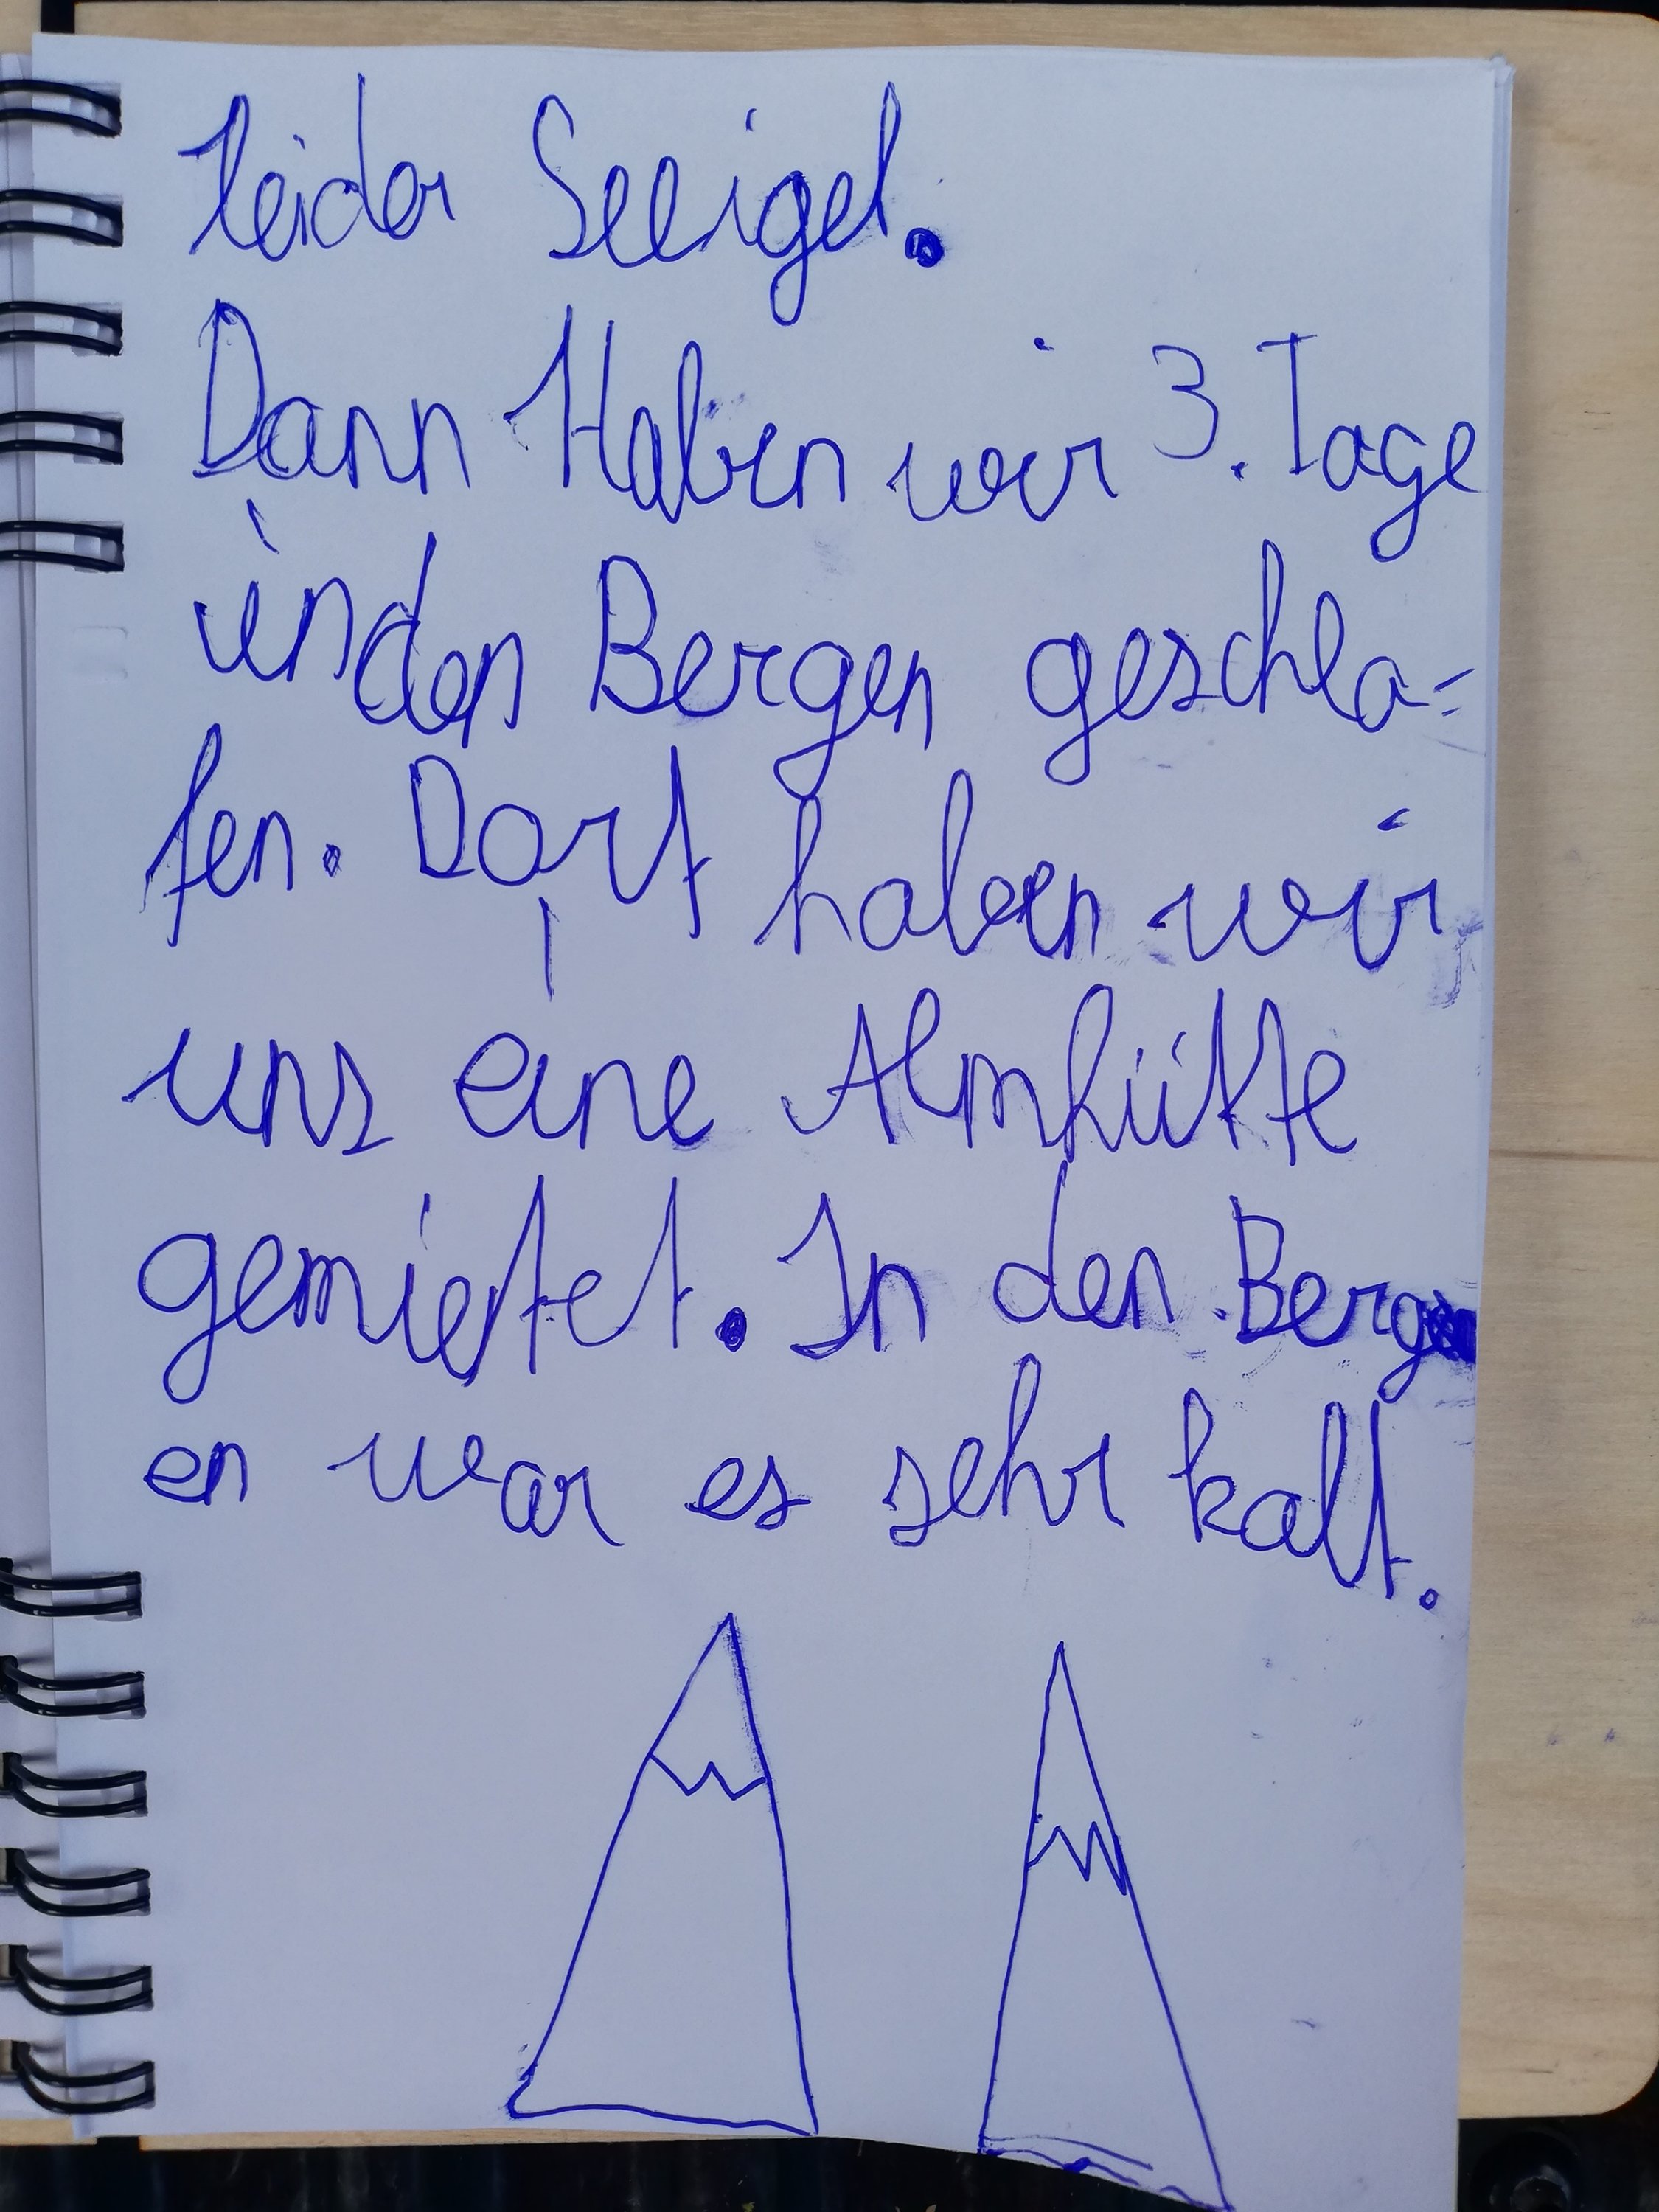 leider Seeigel.
Dann Haben wir 3. Tage
in den Bergen geschla-
fen. Dort haben wir
uns eine Almhütte
gemietet. In den Berg
en war es sehr kalt.